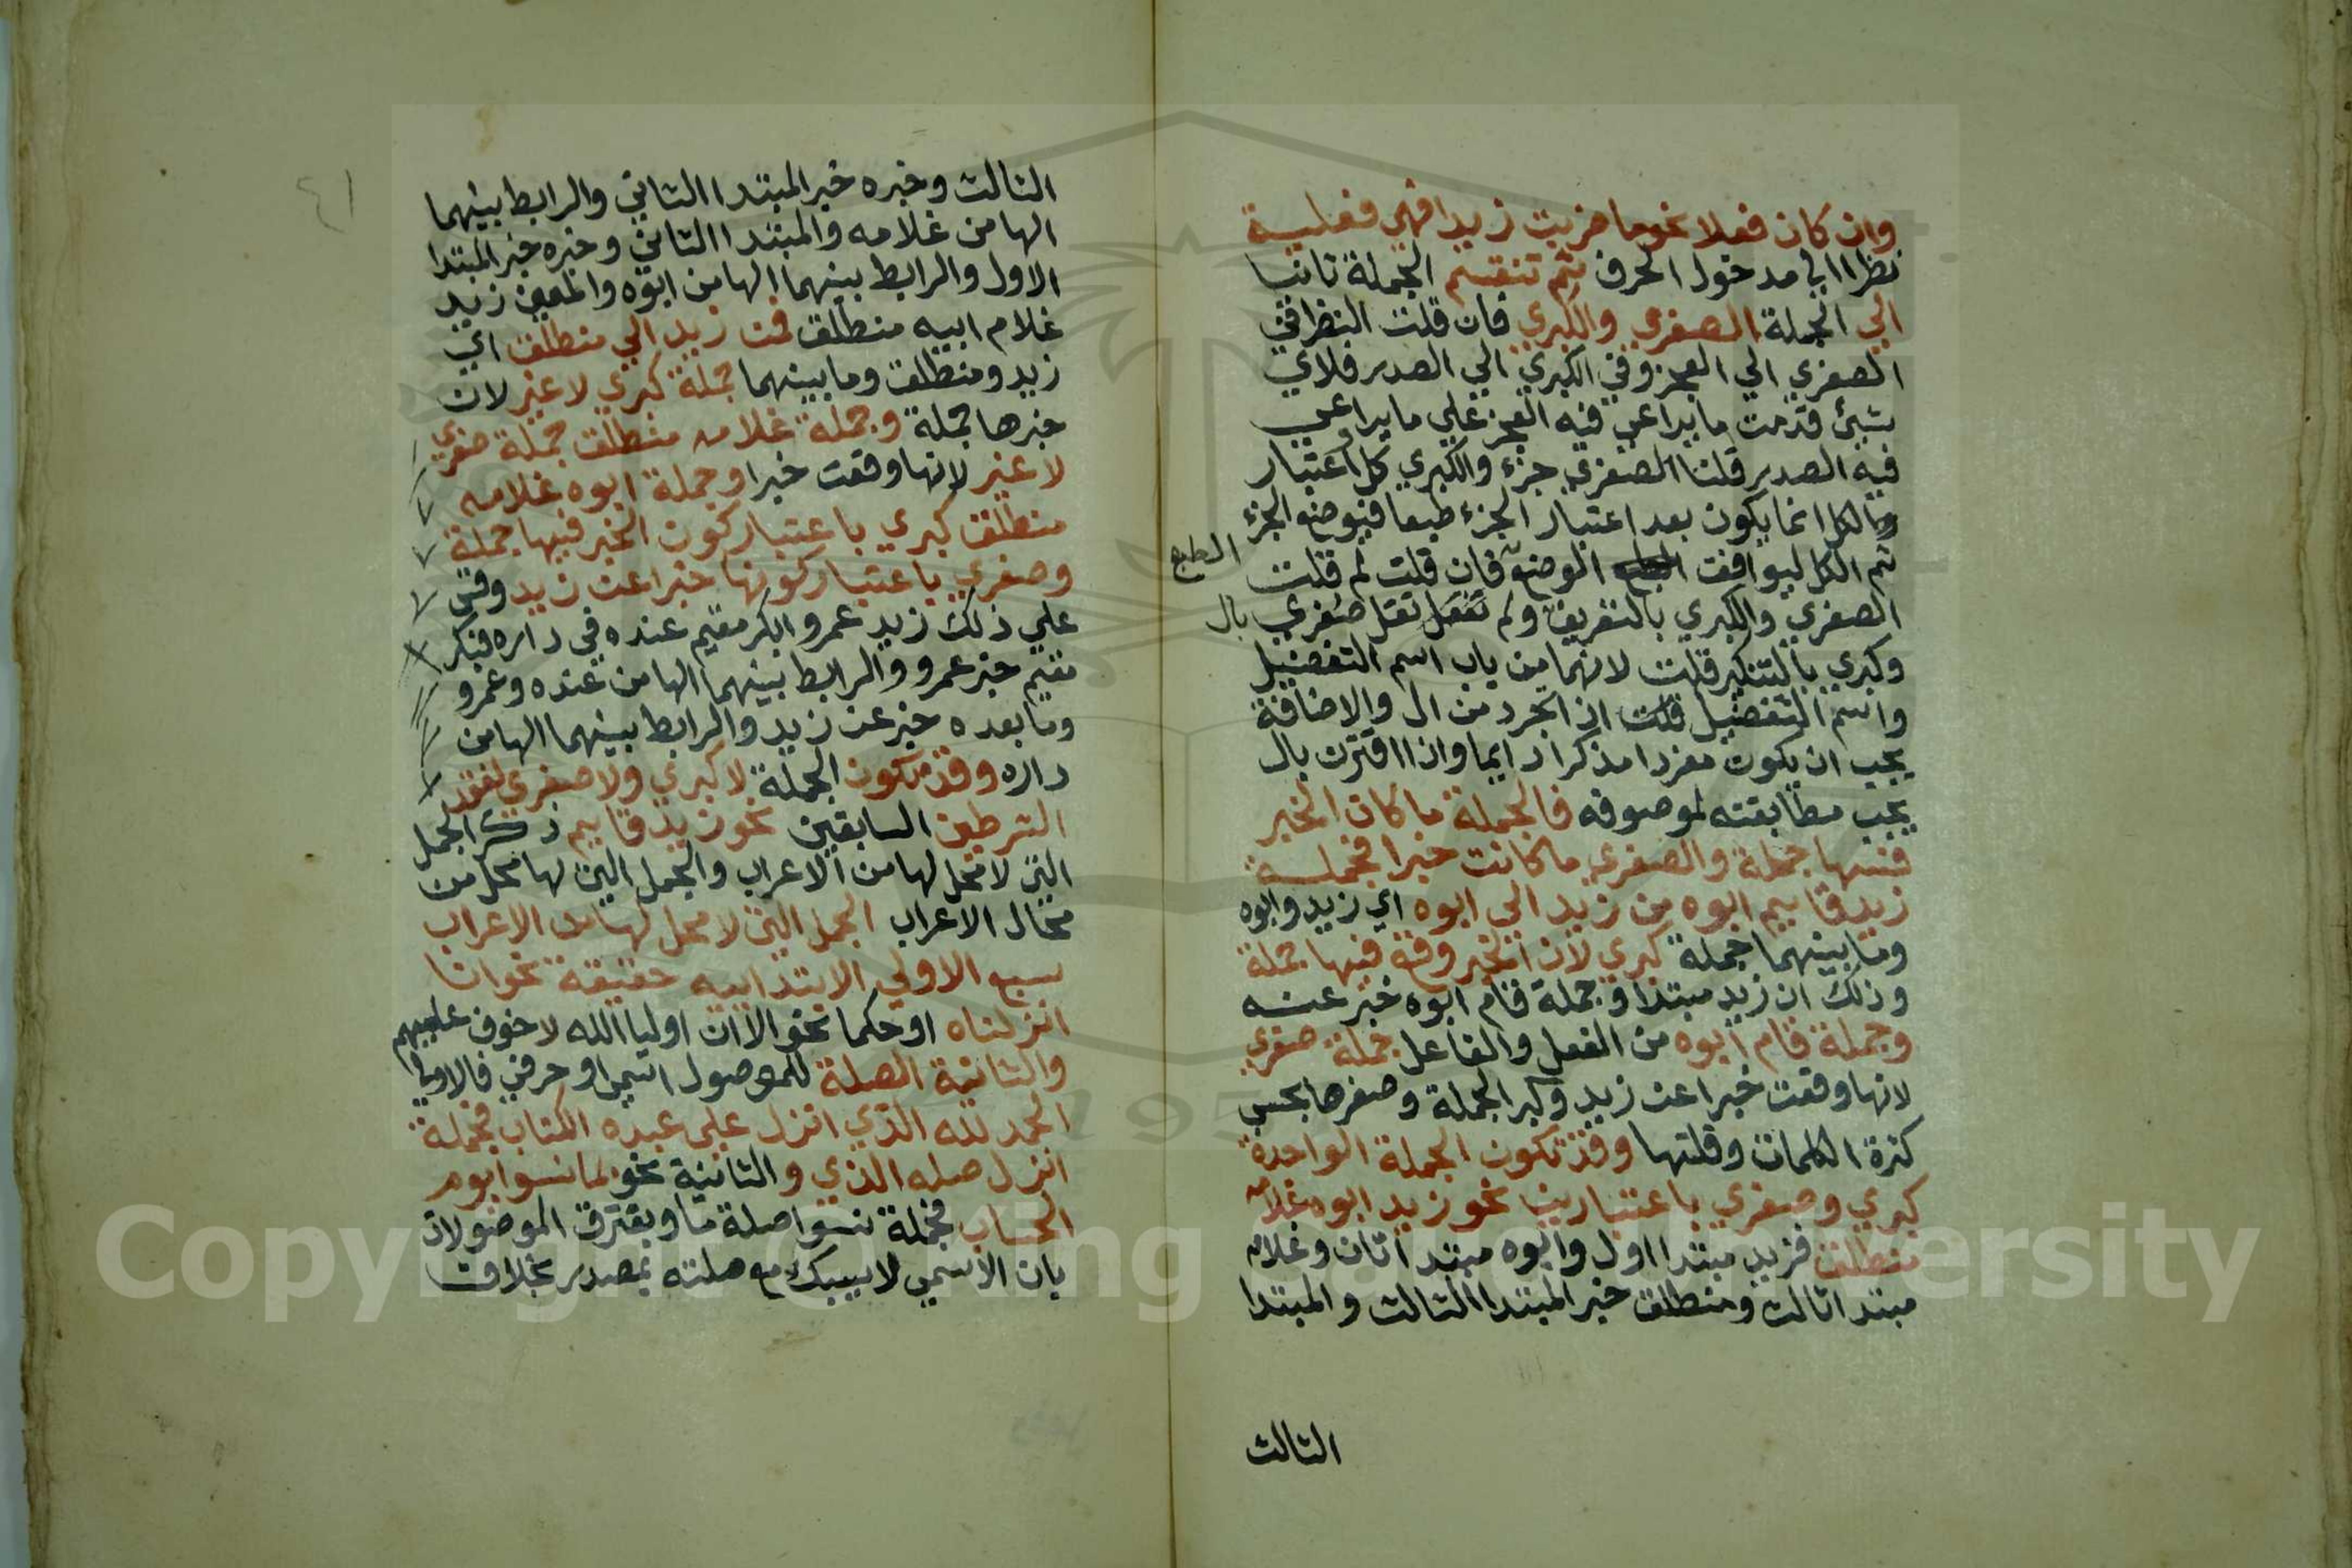 وان كان فعلا نحو ما ضربت زيدا فهي فعلية
نظرا الي مدخول الحرف ثم تنقسم الجملة ثانيا
الي الجملة الصغري والكبري فان قلت النظر في
الصغري الي العجز وفي الكبري الي الصدر فلاي
شيئ قدمت ما يراعي فيه العجز علي ما يراعي
فيه الصدر قلنا الصغري جزء والكبري كل واعتبار
الكل انما يكون بعد اعتبار الجزء طبعا فيوضع الجزء
ثم الكل ليوافق الوضع فان قلت لم قلت
الطبع
الصغري والكبري بالتعريف ولم تقل صغري
بال
وكبري بالتنكير قلت لانهما من باب اسم التفضيل
واسم التفضيل اذا تجرد من ال والاضافة
يجب ان يكون مفردا مذكرا دايما واذا اقترن بال
يجب مطابقته لموصوفه فالجملة ما كان الخبر
فيها جملة والصغري ما كانت خبرا فجملة
زيد قايم ابوه من زيد الي ابوه اي زيد وابوه
وما بينهما جملة كبري لان الخبر وقع فيها جملة
وذلك ان زيد مبتدا وجملة قام ابوه خبر عنه
وجملة قام ابوه من الفعل والفاعل جملة صغري
لانها وقعت خبرا عن زيد وكبر الجملة وصغرها بحسب
كثرة الكلمات وقلتها وقد تكون الجملة الواحدة
كبري وصغري باعتبارين نحو زيد ابوه غلامه
منطلق فزيد مبتدا اول وابوه مبتدا ثان وغلامه
مبتدا ثالث ومنطلق خبر المبتدا الثالث والمبتدا
الثالث
٤١
الثالث وخبره خبر المبتدا الثاني والرابط بينهما
الها من غلامه والمبتدا الثاني وخبره خبر المبتدا
الاول والرابط بينهما الها من ابوه والمعني زيد
غلام ابيه منطلق فمن زيد الي منطلق اي
زيد ومنطلق وما بينهما جملة كبري لا غير لان
خبرها جملة وجملة غلامه منطلق جملة صغري
لا غير لانها وقعت خبرا وجملة ابوه غلامه
منطلق كبري باعتبار كون الخبر فيها جملة
وصغري باعتبار كونها خبرا عن زيد وقس
علي ذلك زيد عمرو ابكر مقيم عنده في داره فبكر
مقيم خبر عمرو والرابط بينهما الها من عنده وعمرو
وما بعده خبر عن زيد والرابط بينهما الها من
داره وقد تكون الجملة لا كبري ولا صغري لفقد
الشرطين السابقين نحو زيد قايم ذكر الجمل
التي لا محل لها من الاعراب والجمل التي لها محل من
محال الاعراب الجمل التي لا محل لها من الاعراب
سبع الاولي الابتداييه حقيقة نحو انا
انزلناه او حكما نحو الا ان اوليا الله لا خوف عليهم
والثانية الصلة للموصول اسمي او حرفي فالاولي
الحمد لله الذي انزل علي عبده الكتاب فجملة
انزل صله الذي والثانية نحو بما نسوا يوم
الحساب فجملة نسوا صلة ما ويفترق الموصولان
بان الاسمي لا يسبك مع صلته بمصدر بخلاف
Copyright © King Saud University